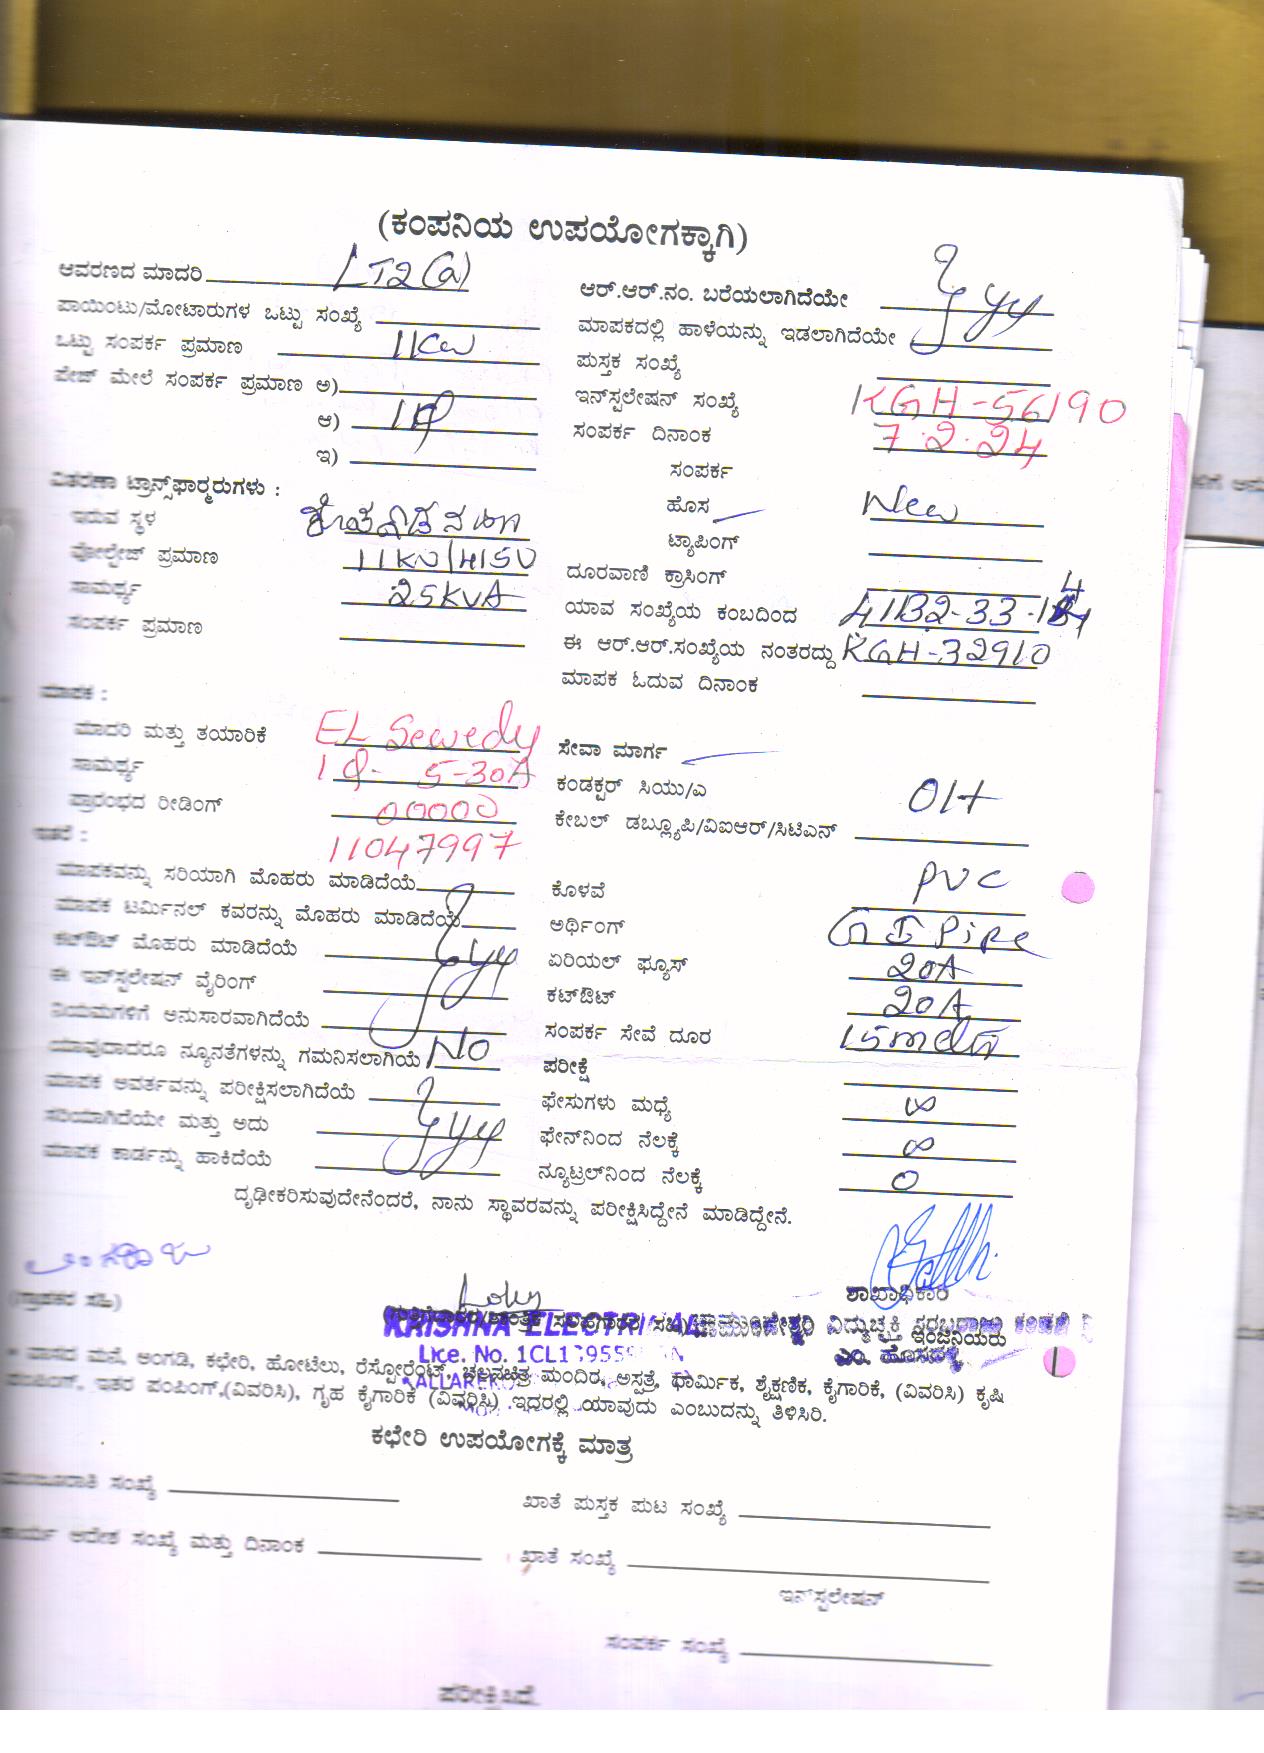 (ಕಂಪನಿಯ ಉಪಯೋಗಕ್ಕಾಗಿ)
ಆವರಣದ ಮಾದರಿ LT2(a)
ಪಾಯಿಂಟು/ಮೋಟಾರುಗಳ ಒಟ್ಟು ಸಂಖ್ಯೆ
ಒಟ್ಟು ಸಂಪರ್ಕ ಪ್ರಮಾಣ 1Kw
ಪೇಜ್ ಮೇಲೆ ಸಂಪರ್ಕ ಪ್ರಮಾಣ ಅ)
ಆ)
ಇ)
ವಿತರಣಾ ಟ್ರಾನ್ಸ್‌ಫಾರ್ಮರುಗಳು :
ಇರುವ ಸ್ಥಳ
ವೋಲ್ಟೇಜ್ ಪ್ರಮಾಣ 11KV/415V
ಸಾಮರ್ಥ್ಯ 25KVA
ಸಂಪರ್ಕ ಪ್ರಮಾಣ
ಮಾಪಕ :
ಮಾದರಿ ಮತ್ತು ತಯಾರಿಕೆ EL Sewedy
ಸಾಮರ್ಥ್ಯ 1Φ- 5-30A
ಪ್ರಾರಂಭದ ರೀಡಿಂಗ್ 00000
ಇತರೆ : 11047997
ಮಾಪಕವನ್ನು ಸರಿಯಾಗಿ ಮೊಹರು ಮಾಡಿದೆಯೆ
ಮಾಪಕ ಟರ್ಮಿನಲ್ ಕವರನ್ನು ಮೊಹರು ಮಾಡಿದೆಯೆ
ಕಟ್‌ಔಟ್ ಮೊಹರು ಮಾಡಿದೆಯೆ
ಈ ಇನ್‌ಸ್ಟಲೇಷನ್ ವೈರಿಂಗ್
ನಿಯಮಗಳಿಗೆ ಅನುಸಾರವಾಗಿದೆಯೆ
ಯಾವುದಾದರೂ ನ್ಯೂನತೆಗಳನ್ನು ಗಮನಿಸಲಾಗಿಯೆ No
ಮಾಪಕ ಅವರ್ತವನ್ನು ಪರೀಕ್ಷಿಸಲಾಗಿದೆಯೆ
ಸರಿಯಾಗಿದೆಯೇ ಮತ್ತು ಅದು
ಮಾಪಕ ಕಾರ್ಡನ್ನು ಹಾಕಿದೆಯೆ
ಆರ್.ಆರ್.ನಂ. ಬರೆಯಲಾಗಿದೆಯೇ
ಮಾಪಕದಲ್ಲಿ ಹಾಳೆಯನ್ನು ಇಡಲಾಗಿದೆಯೇ
ಪುಸ್ತಕ ಸಂಖ್ಯೆ
ಇನ್‌ಸ್ಟಲೇಷನ್ ಸಂಖ್ಯೆ KGH-56190
ಸಂಪರ್ಕ ದಿನಾಂಕ 7.2.24
ಸಂಪರ್ಕ
ಹೊಸ New
ಟ್ಯಾಪಿಂಗ್
ದೂರವಾಣಿ ಕ್ರಾಸಿಂಗ್
ಯಾವ ಸಂಖ್ಯೆಯ ಕಂಬದಿಂದ
ಈ ಆರ್.ಆರ್.ಸಂಖ್ಯೆಯ ನಂತರದ್ದು KGH-32910
ಮಾಪಕ ಓದುವ ದಿನಾಂಕ
ಸೇವಾ ಮಾರ್ಗ
ಕಂಡಕ್ಟರ್ ಸಿಯು/ಎ OH
ಕೇಬಲ್ ಡಬ್ಲ್ಯೂಪಿ/ವಿಐಆರ್/ಸಿಟಿಎನ್
ಕೊಳವೆ PVC
ಅರ್ಥಿಂಗ್ GI Pipe
ಏರಿಯಲ್ ಫ್ಯೂಸ್ 20A
ಕಟ್‌ಔಟ್ 20A
ಸಂಪರ್ಕ ಸೇವೆ ದೂರ
ಪರೀಕ್ಷೆ
ಫೇಸುಗಳು ಮಧ್ಯೆ ∞
ಫೇನ್‌ನಿಂದ ನೆಲಕ್ಕೆ ∞
ನ್ಯೂಟ್ರಲ್‌ನಿಂದ ನೆಲಕ್ಕೆ 0
ದೃಢೀಕರಿಸುವುದೇನೆಂದರೆ, ನಾನು ಸ್ಥಾವರವನ್ನು ಪರೀಕ್ಷಿಸಿದ್ದೇನೆ ಮಾಡಿದ್ದೇನೆ.
(ಗ್ರಾಹಕರ ಸಹಿ)
KRISHNA ELECTRICAL
ಶಾಖಾಧಿಕಾರಿ
ಇಂಜಿನಿಯರು
Lice. No.
* ವಾಸದ ಮನೆ, ಅಂಗಡಿ, ಕಛೇರಿ, ಹೋಟೆಲು, ರೆಸ್ಟೋರೆಂಟ್, ಚಲನಚಿತ್ರ ಮಂದಿರ, ಅಸ್ಪತ್ರೆ, ಧಾರ್ಮಿಕ, ಶೈಕ್ಷಣಿಕ, ಕೈಗಾರಿಕೆ, (ವಿವರಿಸಿ) ಕೃಷಿ
ಪಂಪಿಂಗ್, ಇತರ ಪಂಪಿಂಗ್,(ವಿವರಿಸಿ), ಗೃಹ ಕೈಗಾರಿಕೆ (ವಿವರಿಸಿ) ಇದರಲ್ಲಿ ಯಾವುದು ಎಂಬುದನ್ನು ತಿಳಿಸಿರಿ.
ಕಛೇರಿ ಉಪಯೋಗಕ್ಕೆ ಮಾತ್ರ
ಮಂಜೂರಾತಿ ಸಂಖ್ಯೆ
ಖಾತೆ ಪುಸ್ತಕ ಪುಟ ಸಂಖ್ಯೆ
ಕಾರ್ಯ ಆದೇಶ ಸಂಖ್ಯೆ ಮತ್ತು ದಿನಾಂಕ
ಖಾತೆ ಸಂಖ್ಯೆ
ಇನ್‌ಸ್ಟಲೇಷನ್
ಸಂಪರ್ಕ ಸಂಖ್ಯೆ
ಪರೀಕ್ಷಿಸಿದೆ.